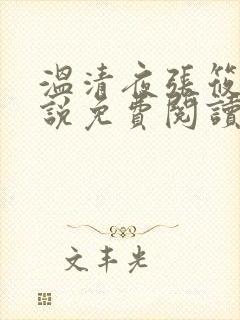 溫清夜張筱
說免費閱讀
文丰光